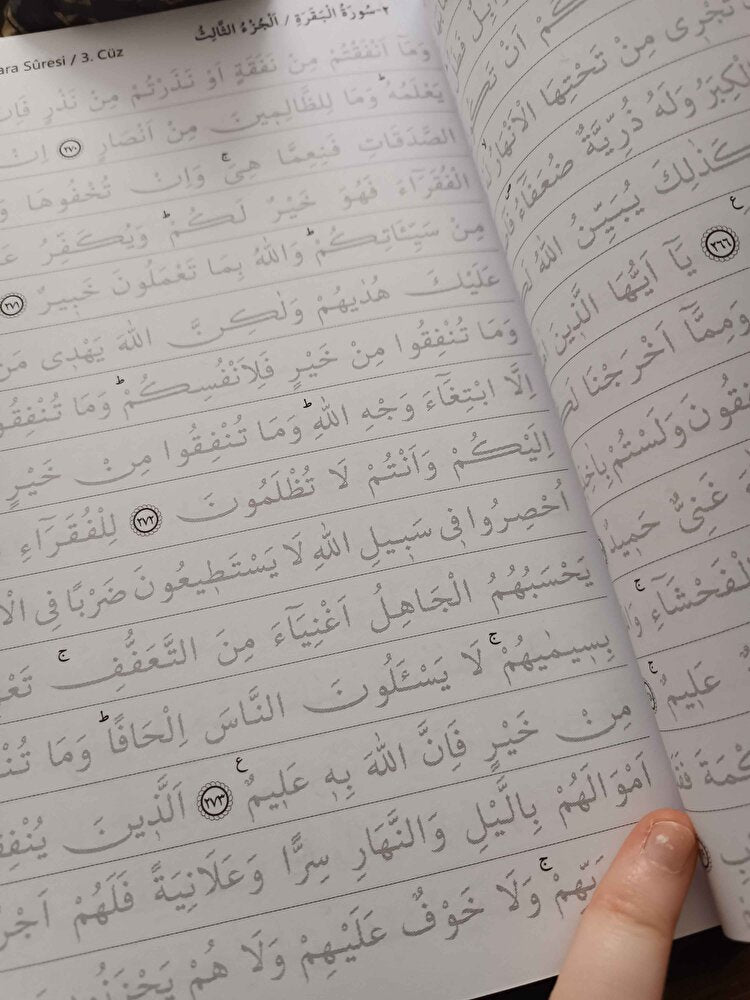 اَنْ
تَجْرٖى مِنْ تَحْتِهَا الْاَنْهَارُ
الْكِبَرُ وَلَهُ ذُرِّيَّةٌ ضُعَفَٓاءُ
كَذٰلِكَ يُبَيِّنُ اللّٰهُ
﴿٢٦٦﴾ يَٓا اَيُّهَا الَّذٖينَ
وَمِمَّٓا اَخْرَجْنَا
وَلَسْتُمْ
غَنِىٌّ حَمٖيدٌ
الْفَحْشَٓاءِ
عَلٖيمٌ
٢-سُورَةُ الْبَقَرَةِ / اَلْجُزْءُ الثَّالِثُ
Sûresi / 3. Cüz
وَمَٓا اَنْفَقْتُمْ مِنْ نَفَقَةٍ اَوْ نَذَرْتُمْ مِنْ نَذْرٍ
يَعْلَمُهُۜ وَمَا لِلظَّالِمٖينَ مِنْ اَنْصَارٍ ﴿٢٧٠﴾ اِنْ
الصَّدَقَاتِ فَنِعِمَّا هِىَۚ وَاِنْ تُخْفُوهَا
الْفُقَرَٓاءَ فَهُوَ خَيْرٌ لَكُمْۜ وَيُكَفِّرُ
مِنْ سَيِّـَٔاتِكُمْۜ وَاللّٰهُ بِمَا تَعْمَلُونَ خَبٖيرٌ ﴿٢٧١﴾
عَلَيْكَ هُدٰيهُمْ وَلٰكِنَّ اللّٰهَ يَهْدٖى مَنْ
وَمَا تُنْفِقُوا مِنْ خَيْرٍ فَلِاَنْفُسِكُمْۜ وَمَا
اِلَّا ابْتِغَٓاءَ وَجْهِ اللّٰهِۜ وَمَا تُنْفِقُوا مِنْ خَيْرٍ
اِلَيْكُمْ وَاَنْتُمْ لَا تُظْلَمُونَ ﴿٢٧٢﴾ لِلْفُقَرَٓاءِ
اُحْصِرُوا فٖى سَبٖيلِ اللّٰهِ لَا يَسْتَطٖيعُونَ ضَرْبًا فِى
يَحْسَبُهُمُ الْجَاهِلُ اَغْنِيَٓاءَ مِنَ التَّعَفُّفِۚ
بِسٖيمٰيهُمْۚ لَا يَسْـَٔلُونَ النَّاسَ اِلْحَافًاۜ وَمَا
مِنْ خَيْرٍ فَاِنَّ اللّٰهَ بِهٖ عَلٖيمٌ ﴿٢٧٣﴾ اَلَّذٖينَ
اَمْوَالَهُمْ بِالَّيْلِ وَالنَّهَارِ سِرًّا وَعَلَانِيَةً فَلَهُمْ
رَبِّهِمْۚ وَلَا خَوْفٌ عَلَيْهِمْ وَلَا هُمْ يَحْزَنُونَ